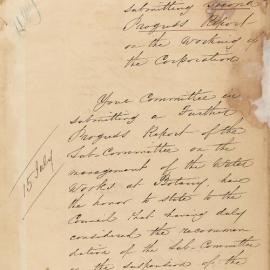 submitting Second
Progress Report
on the Working of
the Corporation
Your Committee in
submitting a Further
Progress Report of the
Sub-Committee on the
management of the Water
Works at Botany, have
the honor to state to the
Council that having duly
considered the recommen
dation of the Sub-Committee
the suspension of the
15 July